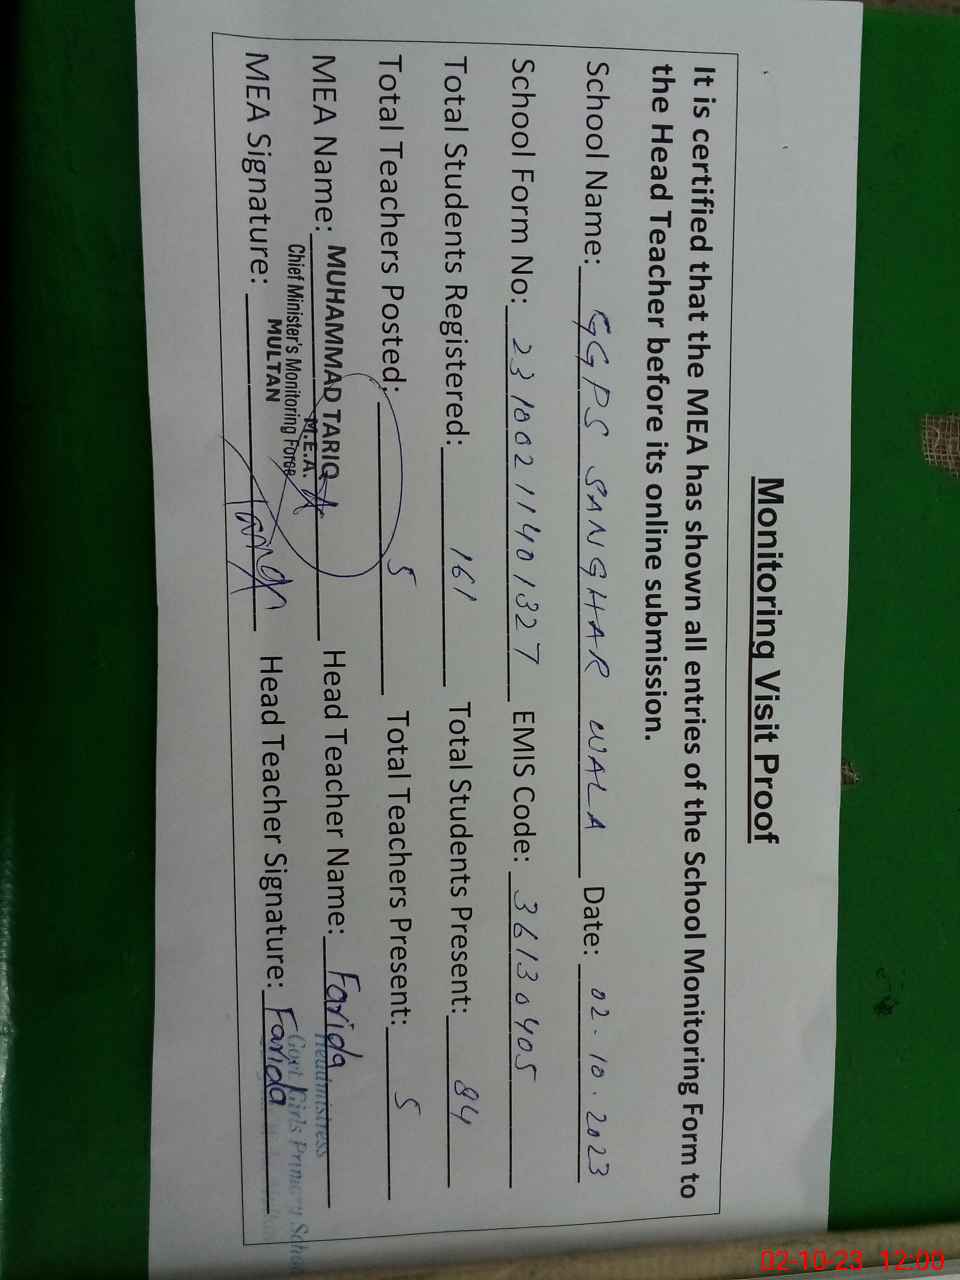 Monitoring Visit Proof
It is certified that the MEA has shown all entries of the School Monitoring Form to
the Head Teacher before its online submission.
School Name: GGPS SANGHAR WALA Date: 02.10.2023
School Form No: 23100211401327 EMIS Code: 36130405
Total Students Registered: 161 Total Students Present: 84
Total Teachers Posted: 5 Total Teachers Present: 5
MEA Name: MUHAMMAD TARIQ Head Teacher Name: Farida
M.E.A. Headmistress
Chief Minister's Monitoring Force Govt Girls Primary School
MULTAN
MEA Signature: Tariq Head Teacher Signature: Farida
02-10-23 12:00